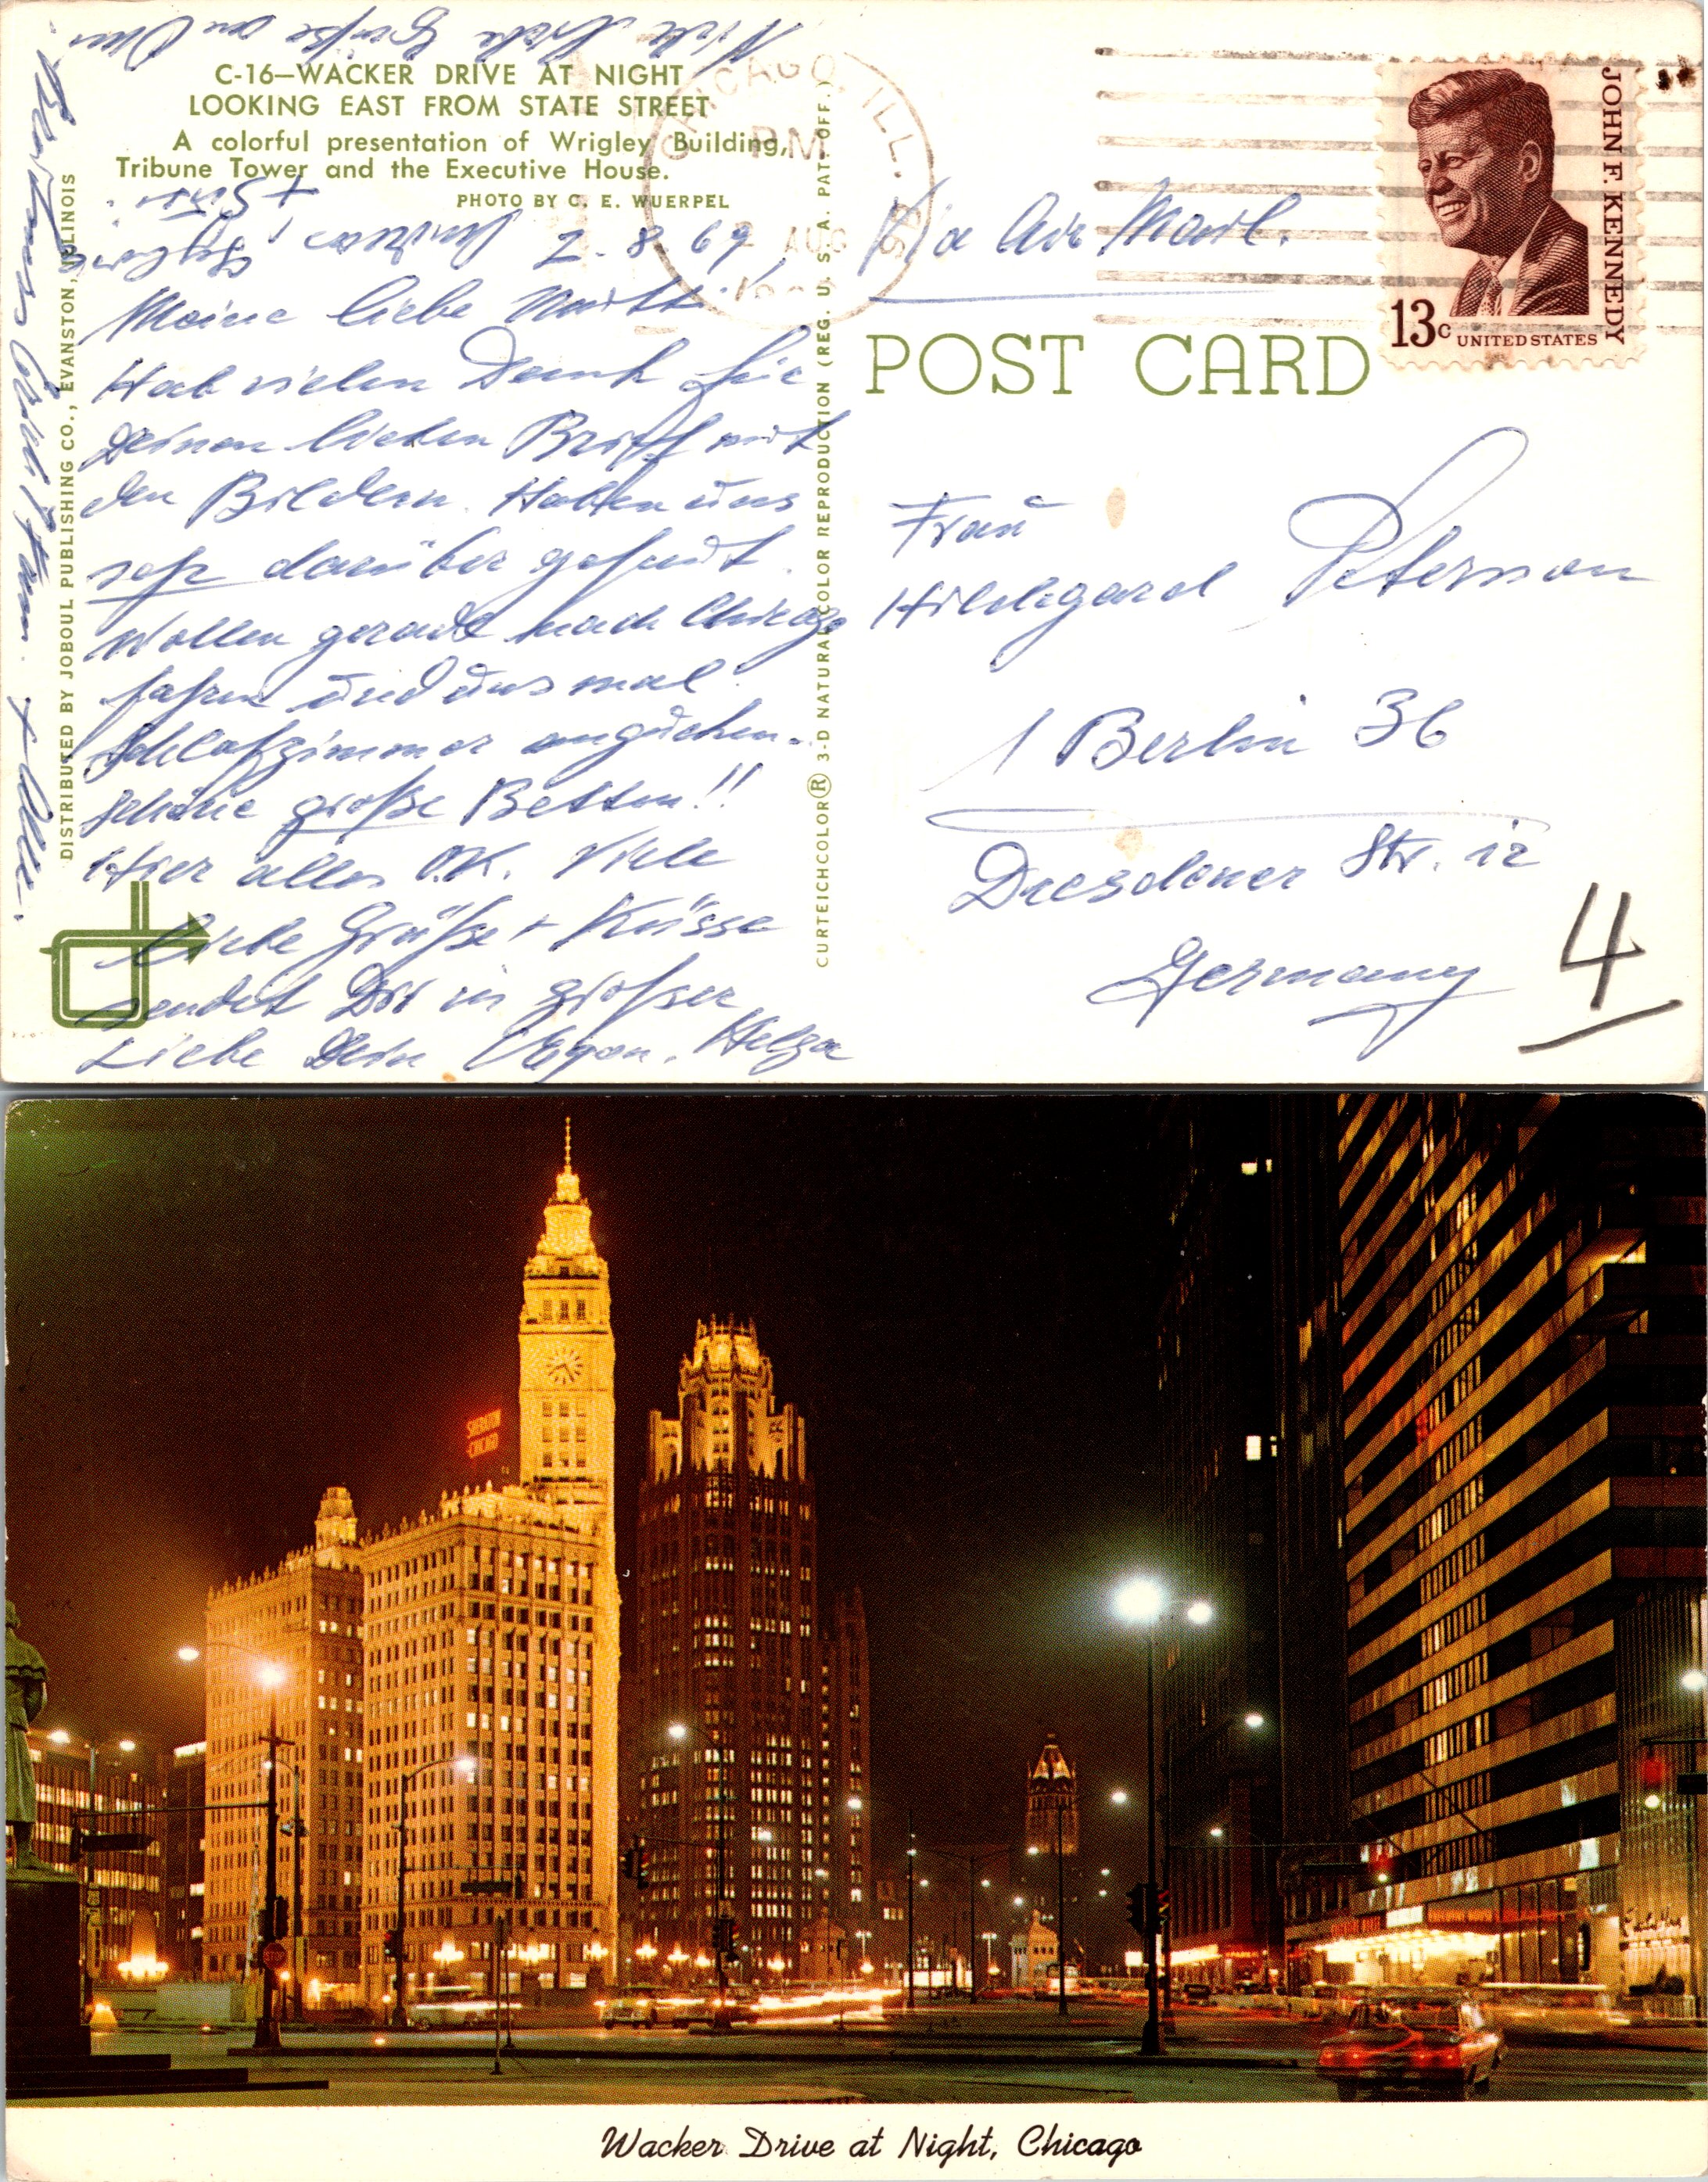 C-16—WACKER DRIVE AT NIGHT
LOOKING EAST FROM STATE STREET
A colorful presentation of Wrigley Building,
Tribune Tower and the Executive House.
PHOTO BY C. E. WUERPEL
2.8.69
Meine liebe Mutti
Hab vielen Dank für
Deinen lieben Brief mit
den Bildern. Haben uns
sehr darüber gefreut.
Wollen gerade nach Chicago
fahren und uns mal
Schlafzimmer angucken.
Schöne große Betten!!
Hier alles O.K. Viele
liebe Grüße + Küsse
sendet Dir in großer
Liebe Dein Egon. Helga
Viele liebe Grüße an
DISTRIBUTED BY JOBOUL PUBLISHING CO., EVANSTON, ILLINOIS
CURTEICHCOLOR® 3-D NATURAL COLOR REPRODUCTION (REG. U. S. A. PAT. OFF.)
CHICAGO, ILL.
PM
2 AUG
1969
Via Air Mail.
JOHN F. KENNEDY
13c UNITED STATES
POST CARD
Frau
Hildegard Peterman
1 Berlin 36
Dresdener Str. 12
Germany
4
SHERATON
CHICAGO
Wacker Drive at Night, Chicago